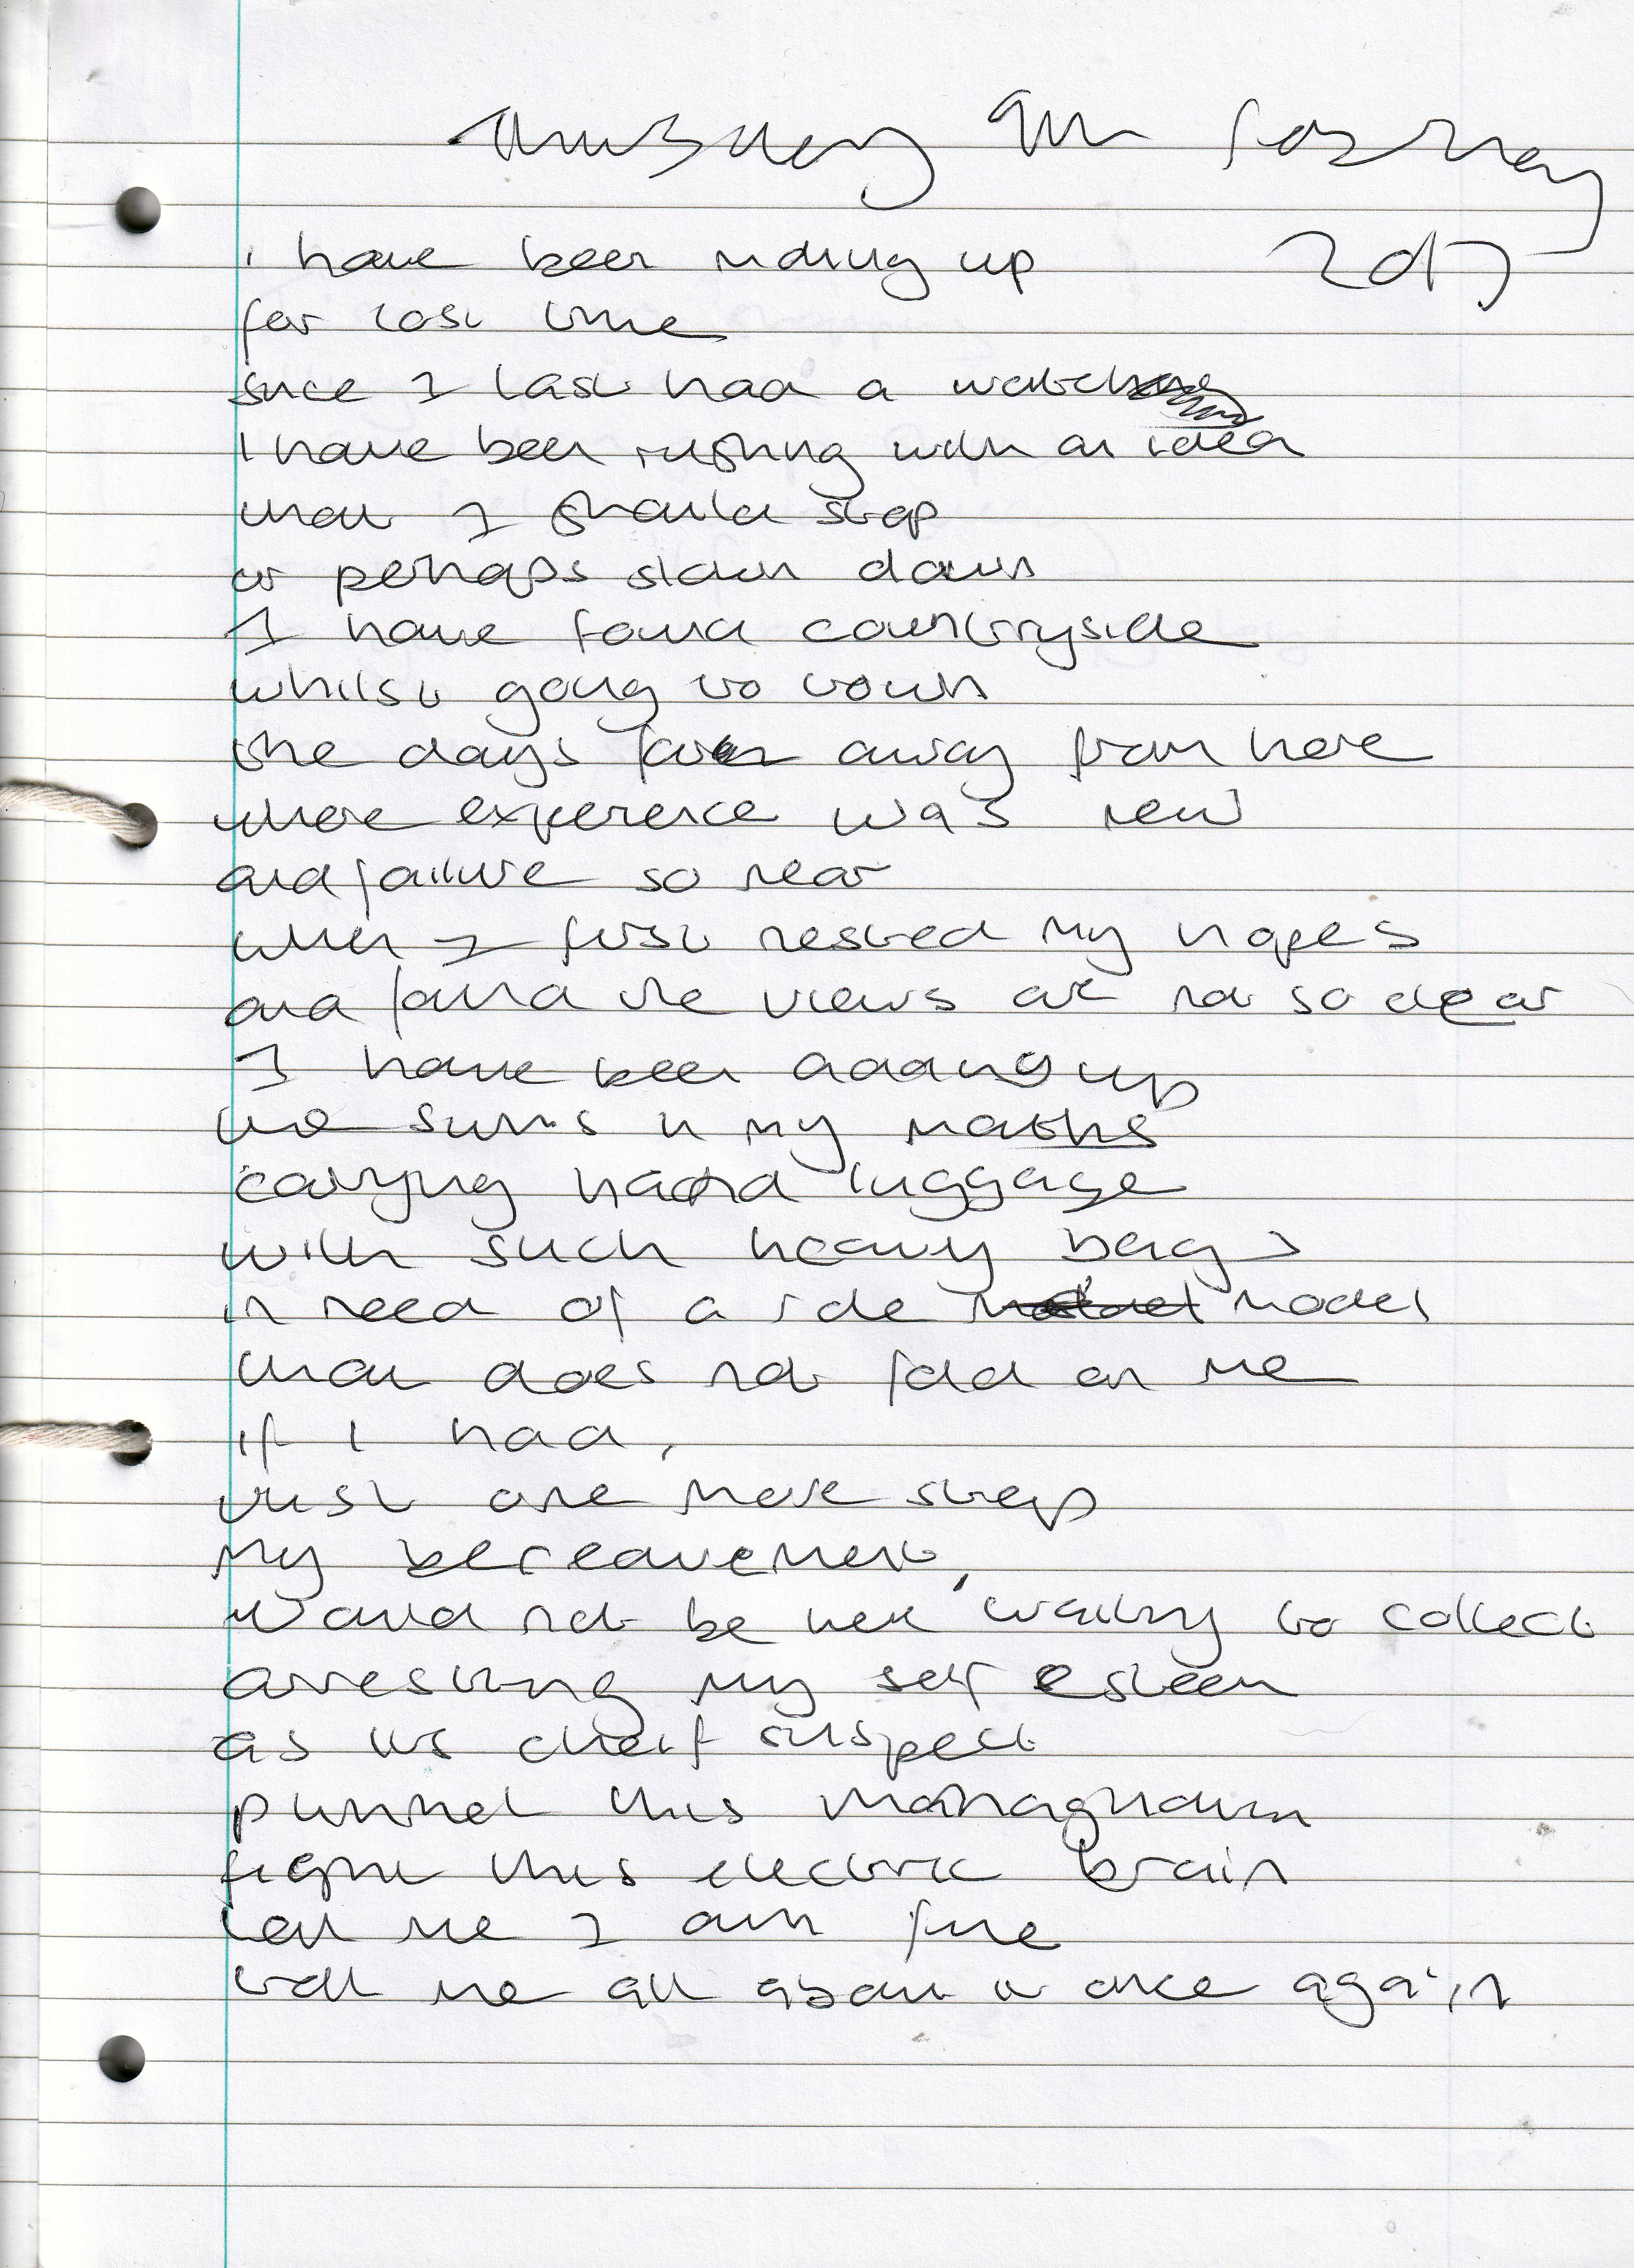 Thursday 9th February
2017
I have been riding up
for lost time
since I last had a watch
I have been rushing with an idea
that I should stop
or perhaps slow down
I have found countryside
whilst going to town
the days far away from here
where experience was new
and failure so near
when I first rested my hopes
and found the views at not so dear
I have been adding up
the sums in my maths
carrying hand luggage
with such heavy bags
in need of a role model
that does not fold on me
if I had,
just one more step
my bereavement,
would not be here waiting to collect
arresting my self esteem
as its cheif suspect
this
fight this electric brain
tell me I am fine
tell me all about it once again